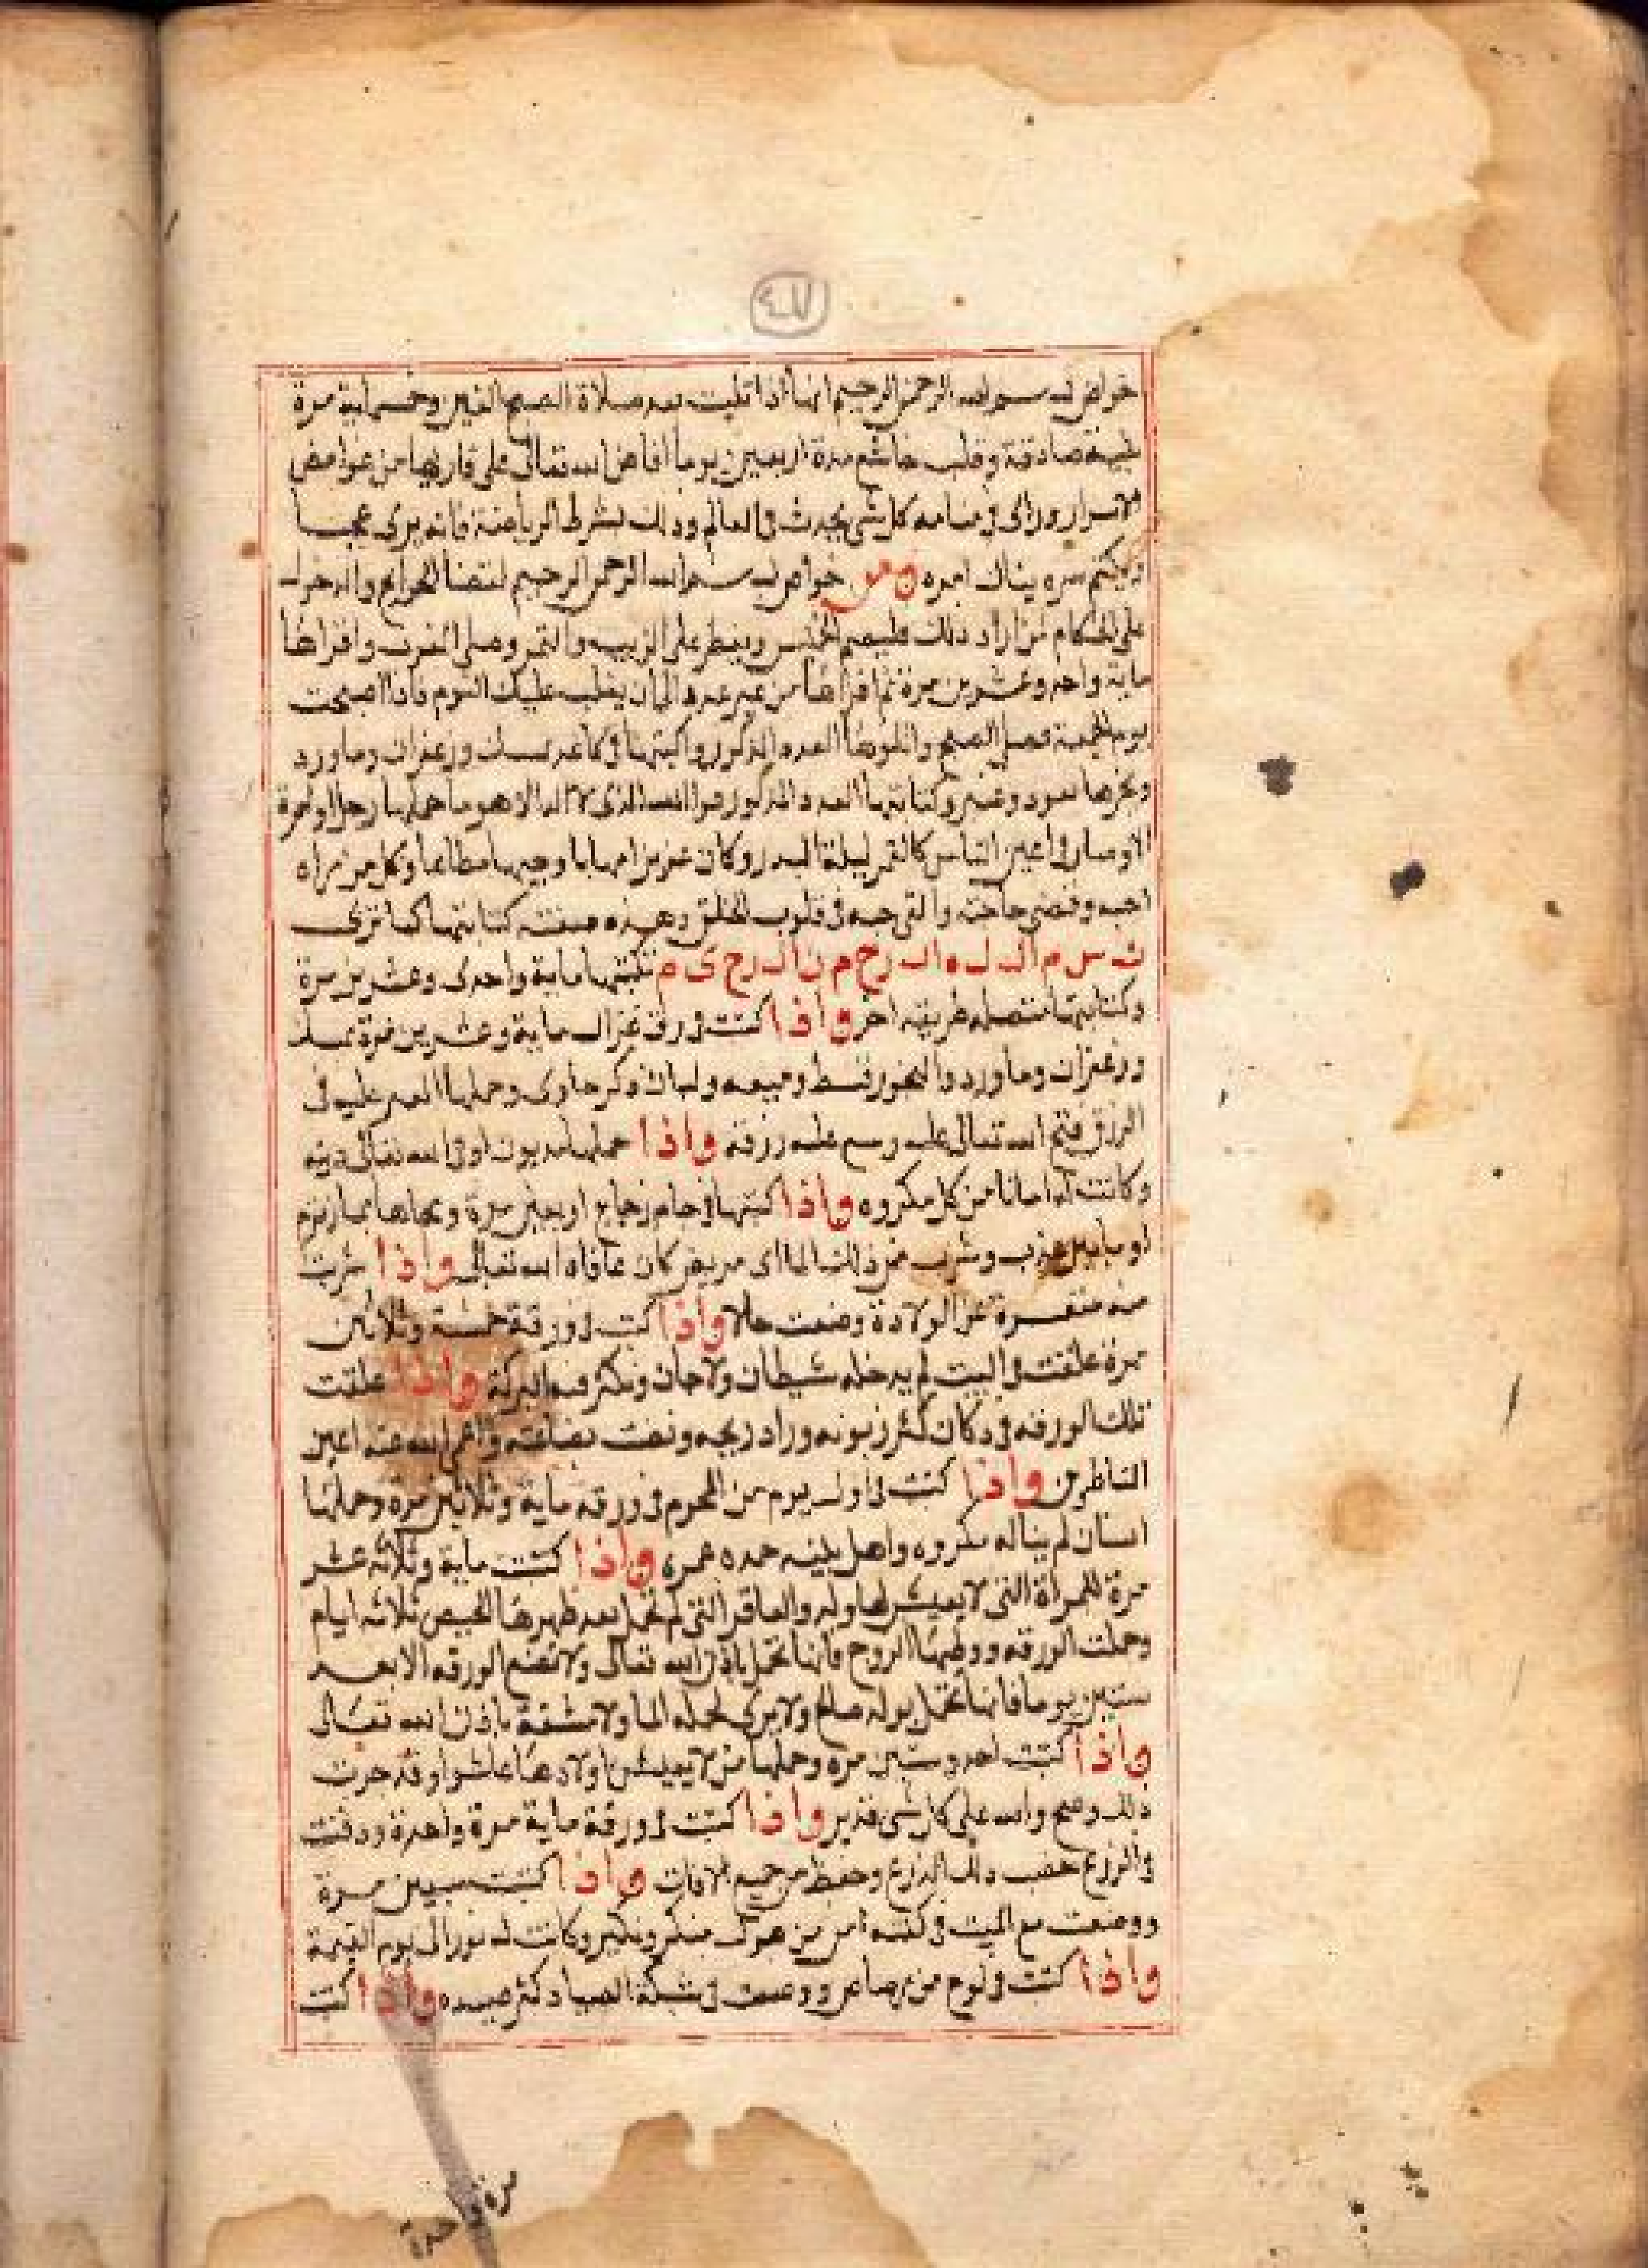 ٤٧
خواص بسم الله الرحمن الرحيم انها اذا تليت بعد صلاة الصبح الفين وخمسماية مرة
بنية صادقة وقلب خاشع مدة اربعين يوما افاض الله تعالى على قاريها من غوامض
الاسرار وراى في منامه كل شي يحدث في العالم وذلك بشرط الرياضة فانه يرى عجبا
وليكتم سره ينال امره ومن خواص بسم الله الرحمن الرحيم لقضا الحوايج والدخول
على الحكام من اراد ذلك فليصم الخميس ويفطر على الزبيب والتمر وصلى المغرب واقراها
ماية واحد وعشرين مرة ثم اقراها من غير عدد الى ان يغلب عليك النوم فاذا اصبحت
يوم الجمعة فصل الصبح واتلوها العدد المذكور واكتبها في كاغد بمسك وزعفران وماورد
وبخرها بعود وعنبر وكتابتها العدد المذكور فوالله الذي لا اله الا هو ما حملها رجل او امرة
الا وصار في اعين الناس كالقمر ليلة البدر وكان عزيزا مهابا وجيها مطاعا وكل من راه
احبه وقضى حاجته والقى حبه في قلوب الخلق وهذه صفة كتابتها كما ترى
ب س م ا ل ل ه ا ل ر ح م ن ا ل ر ح ى م تكتبها ماية واحدى وعشرين مرة
وكتابتها منفصله طريقه اخر واذا كتبت في رق غزال ماية وعشرين مرة بمسك
وزعفران وماورد والبخور قسط وميعه ولبان ذكر جاوى وحملها المعسر عليه في
الرزق فتح الله تعالى عليه ووسع عليه رزقه واذا حملها مديون اوفى الله تعالى دينه
وكانت له امانا من كل مكروه واذا كتبتها في جام زجاج اربعين مرة ومحاها بما زمزم
او ما بير عذب وشرب من ذلك الما اى مريض كان عافاه الله تعالى واذا شربت
منه متعسرة عن الولادة وضعت حالا واذا كتبت في ورقة خمسة وثلاثين
مرة وعلقت في البيت لم يدخله شيطان ولا جان وتكثر فيه البركة واذا علقت
تلك الورقه في دكان كثر زبونه وزاد ربحه ونفت بضاعته واعمى الله عنه اعين
الناظرين واذا كتبت في اول يوم من المحرم في ورقه ماية وثلاثين مرة وحملها
انسان لم يناله مكروه واهل بيته مده عمره واذا كتبت ماية وثلاثه عشر
مرة للمراة التي لا يعيش لها ولد والعاقر التي لم تحمل بعد طهرها الحيض ثلاثه ايام
وحملت الورقه ووطيها الزوج فانها تحمل باذن الله تعالى ولا تضع الورقه الا بعد
ستين يوما فانها تحمل بولد صالح ولا ترى لحمله الما ولا مشقة باذن الله تعالى
واذا كتبت احد وستين مره وحملها من لا يعيش اولادها عاشوا وقد جرب
ذلك وصح والله على كل شى قدير واذا كتبت في ورقة ماية مرة واحدة ودفنت
في الزرع خصب ذلك الزرع وحفظ من جميع الافات واذا كتبت سبعين مرة
ووضعت مع الميت في كفنه امن من هول منكر ونكير وكانت له نورا الى يوم القيمة
واذا كتبت في لوح من رصاص ووضعت في شبكة الصياد كثر صيده واذا كتبت
مرة واحدة